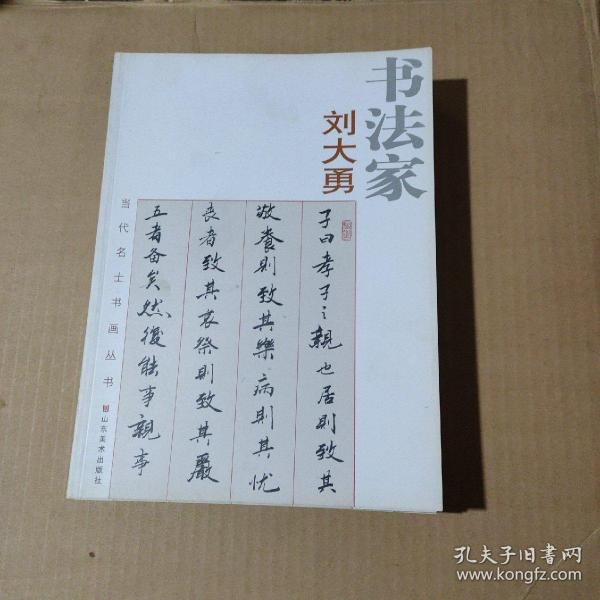 书法家
刘大勇
子曰孝子之親也居則致其
敬養則致其樂病則其忧
丧者致其哀祭則致其嚴
五者备矣然後能事親事
当代名士书画丛书
山东美术出版社
孔夫子旧书网
www.kongfz.com